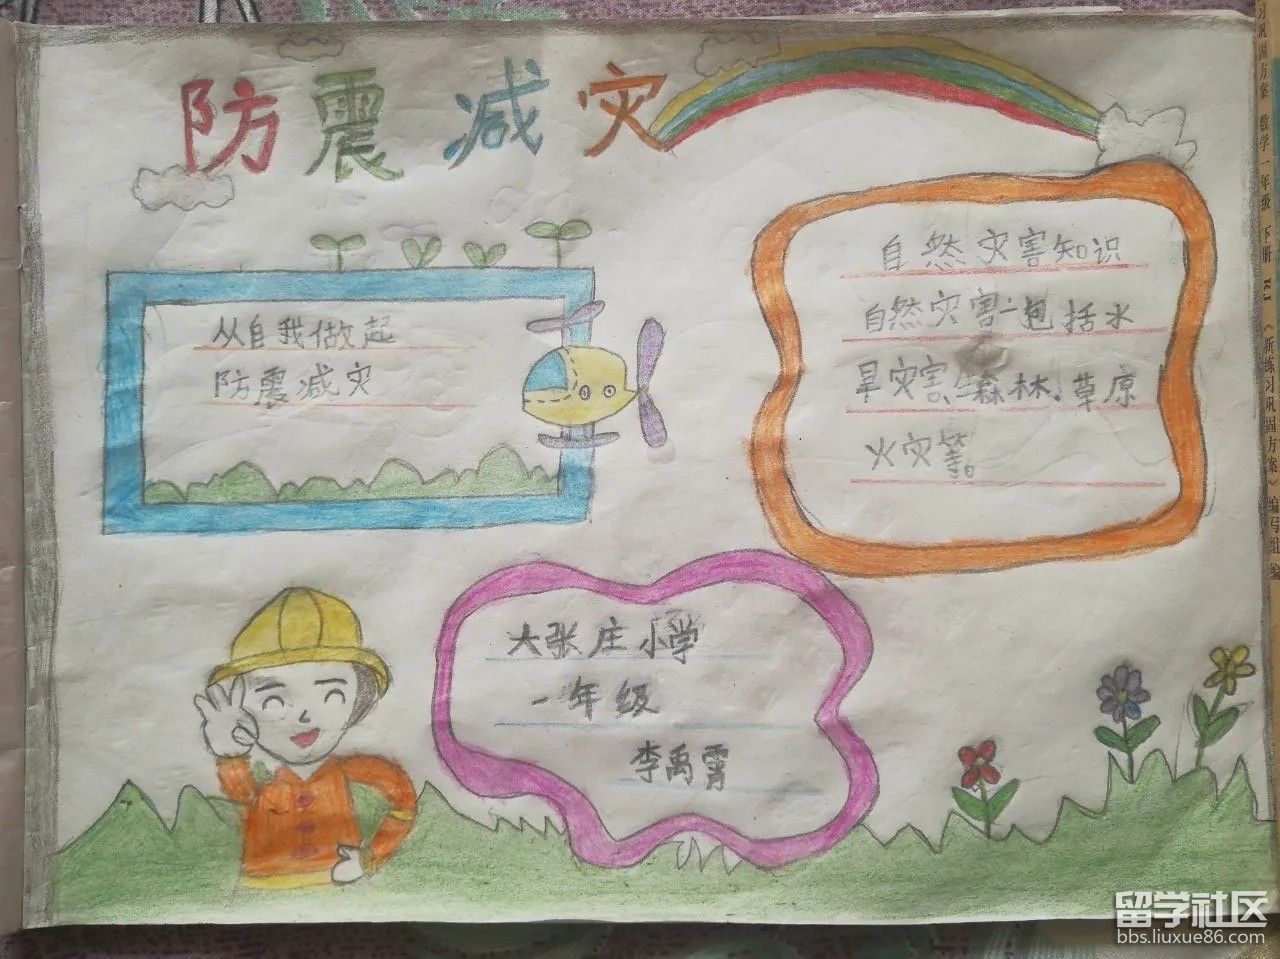 防震减灾
从自我做起
防震减灾
自然灾害知识
自然灾害包括水
旱灾害、森林、草原
火灾等。
大张庄小学
一年级
李禹霄
巩固方案 数学一年级 下册 RJ 《新练习巩固方案》编写组 编
留学社区
bbs.liuxue86.com